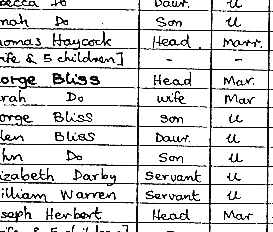 becca Do Daur. u
nah Do Son u
homas Haycock Head. Marr.
ife & 5 children] - -
orge Bliss Head Mar.
rah Do wife Mar
orge Bliss son u
len Bliss Daur. u
hn Do Son u
izabeth Darby Servant u
illiam Warren Servant u
seph Herbert Head Mar
ife & 5 children] - -